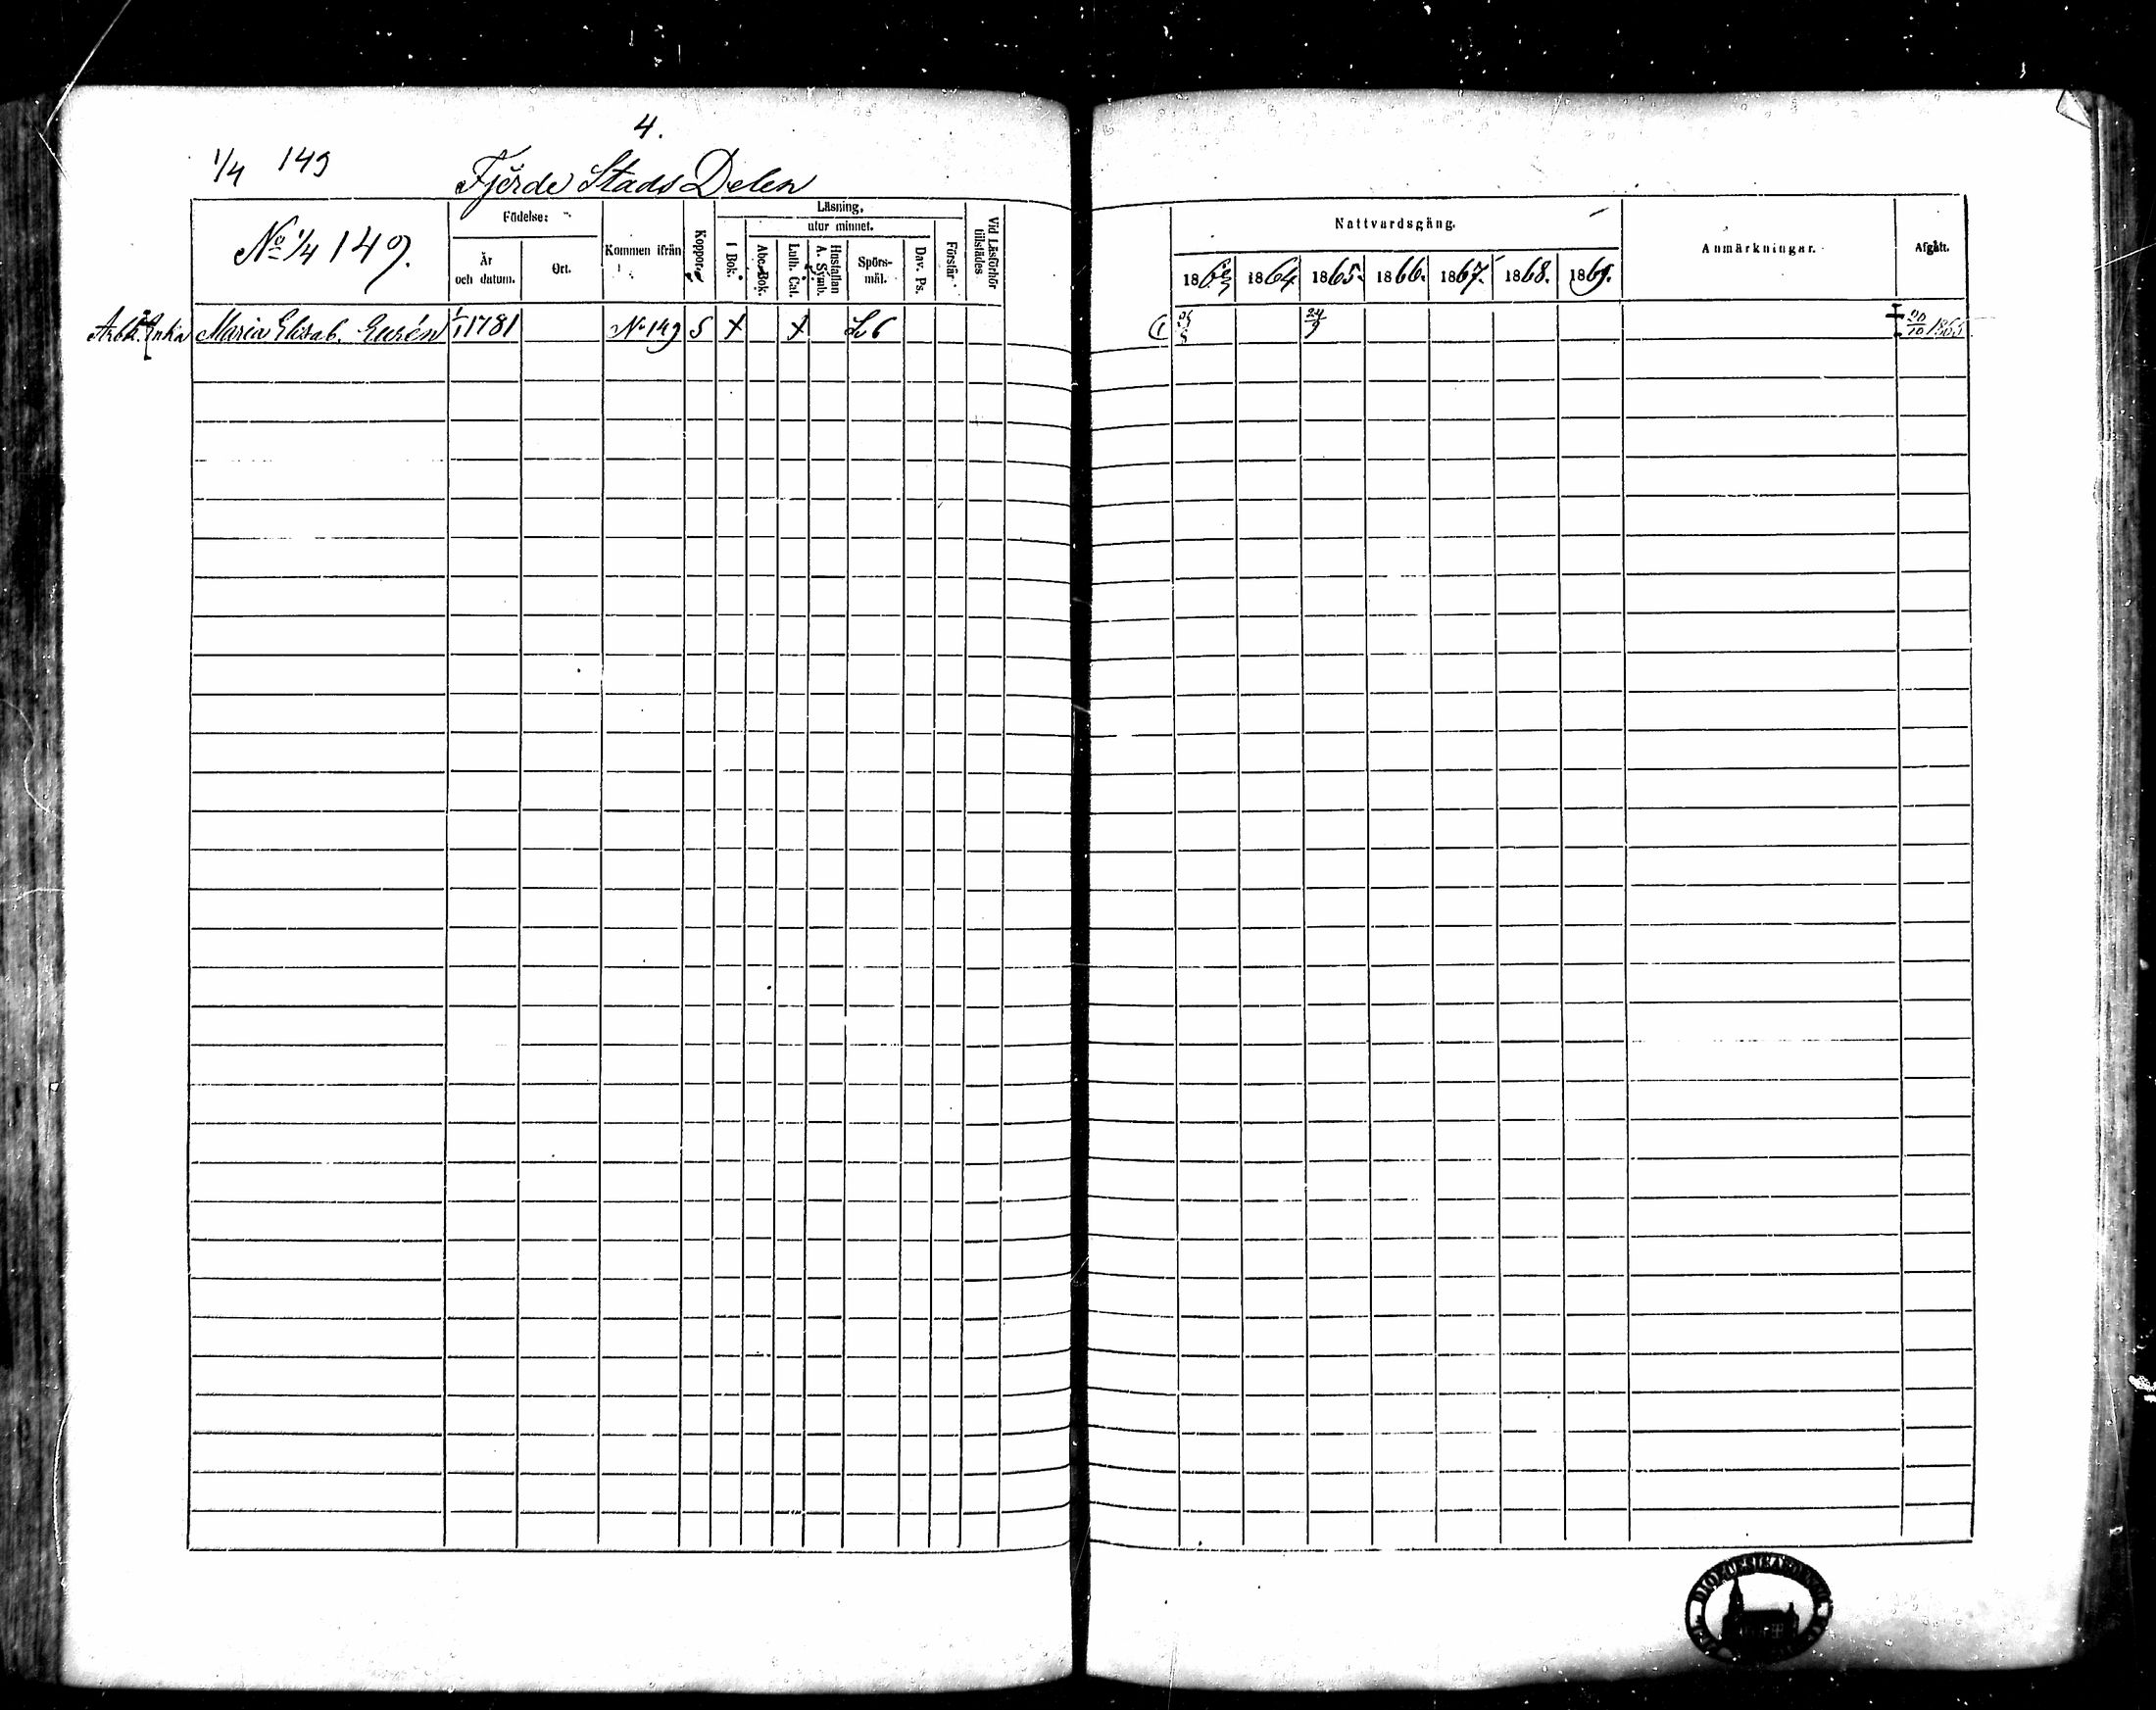 4.
1/4 149
Fjerde Stads Delen
No 1/4 149.
Födelse:
År och datum.
Ort.
Kommen ifrån
Koppor.
Läsning,
utur minnet.
I Bok.
Abc-Bok.
Luth. Cat.
Hustaflan A. Symb.
Spörs-mål.
Dav. Ps.
Förstår
Vid Läsförhör tillstädes
Nattvardsgång.
1863 1864 1865. 1866. 1867. 1868. 1869.
Anmärkningar.
Afgått.
Arbk. Enka Maria Elisab. Eurén 1/1 1781 No 149 S X X L. 6
24/9
20/10 1865